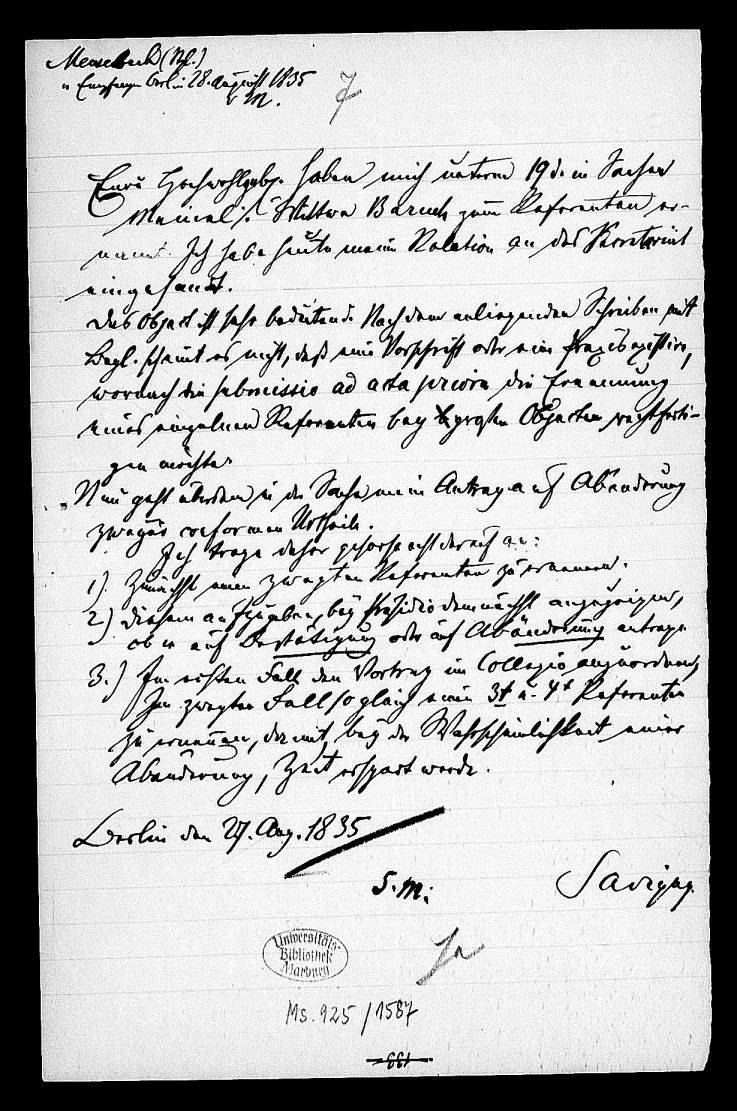 Meusebach (Nl.)
Empfangen Berlin 28. August 1835
v M.
7
Eure Hochwohlgeb. haben mich unterm 19 d. in Sachen
Meinel /. Wittwe Baruch zum Referenten er-
nannt. Ich habe heute meine Relation an das Secretariat
eingesandt.
Das Object ist sehr bedeutend. Nach dem anliegenden Schreiben mit
Begl. scheint es nicht, daß eine Vorschrift oder eine Praxis existire,
wornach die submissio ad acta priora die Ernennung
eines einzelnen Referenten bey großen Objecten rechtferti-
gen möchte.
Nun geht überdem in der Sache mein Antrag auf Abänderung
zweyer conformen Urtheile.
Ich trage daher gehorsamst darauf an:
1) Zunächst einen zweyten Referenten zu ernennen.
2) diesem aufzugeben, bey Präsidio demnächst anzuzeigen,
ob er auf Bestätigung oder auf Abänderung antrage
3.) Im ersten Fall den Vortrag im Collegio anzuordnen,
Im zweyten Fall sogleich einen 3t u. 4t Referenten
zu ernennen, damit, bey der Wahrscheinlichkeit einer
Abänderung, Zeit erspart werde.
Berlin den 27. Aug. 1835
S. m: Savigny.
Universitäts-
Bibliothek
Marburg
Ms. 925 / 1587